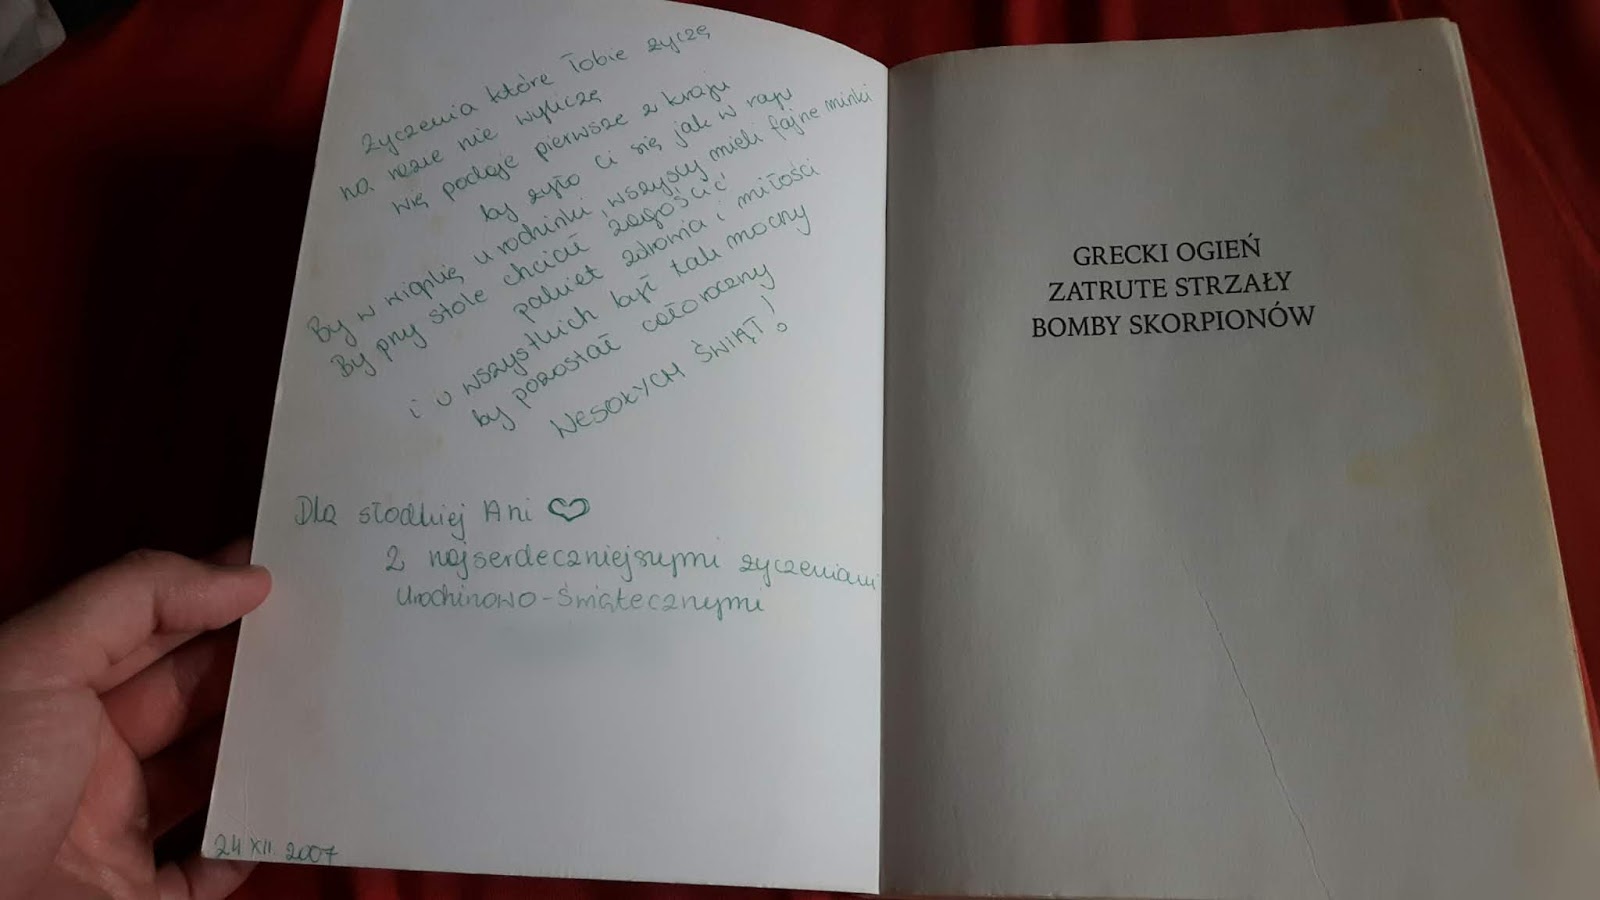 Życzenia które Tobie życzę
na razie nie wyliczę
więc podaję pierwsze z kraju
by żyło Ci się jak w raju
By w wigilię urodzinki wszyscy mieli fajne minki
By przy stole chciał zagościć
pakiet zdrowia i miłości
i u wszystkich był tak mocny
by pozostał całoroczny
WESOŁYCH ŚWIĄT!
Dla słodkiej Ani ♡
Z najserdeczniejszymi życzeniami
urodzinowo-świątecznymi
24 XII. 2007
GRECKI OGIEŃ
ZATRUTE STRZAŁY
BOMBY SKORPIONÓW